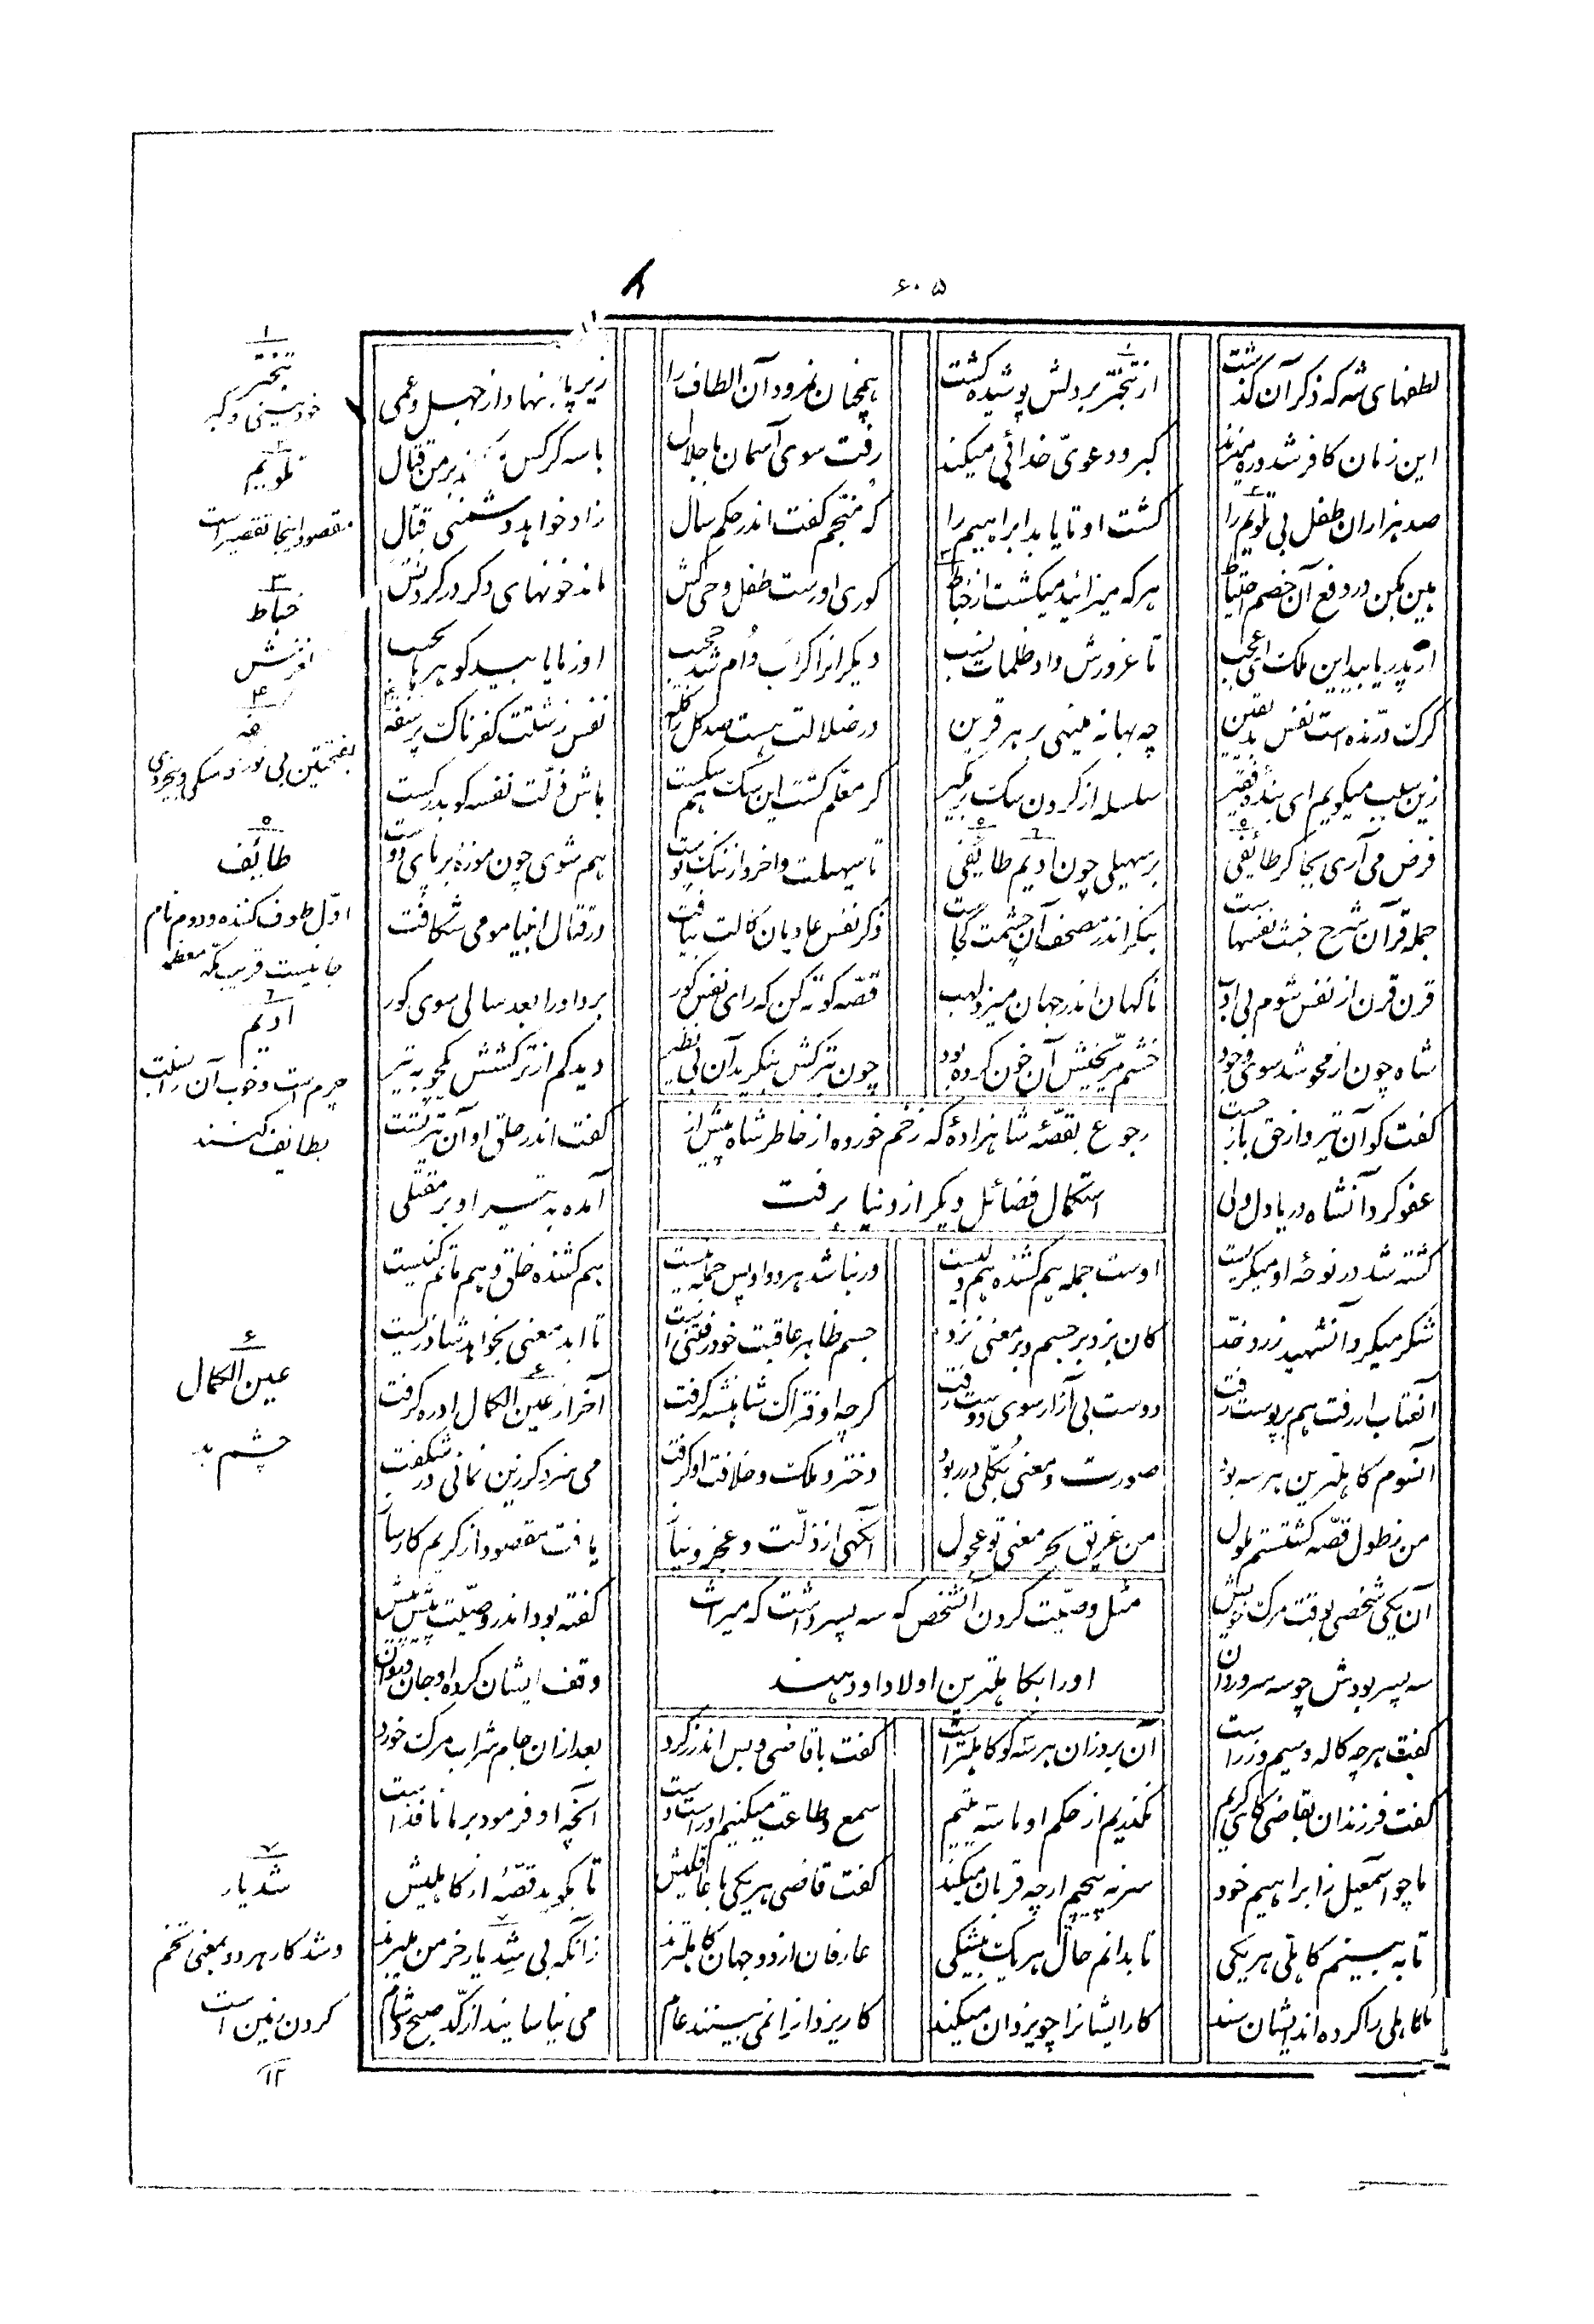 ۶۰۵
لطفهای شه که ذکر آن گذشت از تبختر بر دلش پوشیده گشت
همچنان نمرود آن الطاف را زیر پا بنهاد از جهل و عمی
این زمان کافر شد و ره میزند کبر و دعویّ خدائی میکند
رفت سوی آسمان باجلال با سه کرکس بر من قتال
صد هزاران طفل بی تلویم را کشت او تا یابد ابراهیم را
که منجّم گفت اندر حکم سال زاد خواهد دشمنی قتال
هین بکن در دفع آن خصم احتیاط هر که میزائید میکشت از خباط
کوری او رست طفل وحی کش ماند خونهای دگر در گردنش
از پدر یابید این ملک ای عجب تا غرورش داد ظلمات نسب
دیگرانرا گر اب و اُم شد حجب او ز ما یابید گوهر بجیب
گرگ درّنده است نفس بد یقین چه بهانه مینهی بر هر قرین
در ضلالت هست صد کل را کله نفس زشتت کفرناک پر سفه
زین سبب میگویم ای بندهٔ فقیر سلسله از گردن سگ بر مگیر
گر معلّم گشت این سگ هم سگست باش ذلّت نفسه کو بدرگست
فرض می آری بجا گر طائفی بر سهیلی چون ادیم طائفی
تا سهیلت واخرد از ننگ پوست هم شوی چون موزهٔ بر پای دوست
جمله قرآن شرح خبث نفسهاست بنگر اندر مصحف آن چشمت کجاست
ذکر نفس عادیان کالت بیافت در قتال انبیا مو می شکافت
قرن قرن از نفس شوم بی ادب ناگهان اندر جهان میزد لهب
قصّه کوته کن که رای نفس کور برد او را بعد سالی سوی گور
شاه چون از محو شد سوی وجود خشم مرّیخیش آن خون کرده بود
چون بترکش بنگرید آن بی نظیر دید کم از ترکشش یکچوبه تیر
گفت کو آن تیر و از حق باز جست گفت اندر حلق او آن تیر تست
رجوع بقصّهٔ شاهزادهٔ که زخم خورده از خاطر شاه پیش از
استکمال فضائل دیگر از دنیا برفت
عفو کرد آنشاه دریا دل ولی آمده بد تیر او بر مقتلی
کشته شد در نوحهٔ او میگریست اوست جمله هم کشنده هم ولیست
ور نباشد هر دو او پس جمله نیست هم کشندهٔ خلق و هم ماتم کنیست
شکر میکرد آنشهید زرد خدّ کان بزد بر جسم و بر معنی نزد
جسم ظاهر عاقبت خود رفتنی است تا ابد معنی بخواهد شاد زیست
آنعتاب ار رفت هم بر پوست رفت دوست بی آزار سوی دوست رفت
گرچه او فتراک شاهنشه گرفت آخر از عین الکمال او ره گرفت
آنسوم کاهلترین هر سه بود صورت و معنی بکُلّی در ربود
دختر و ملکت و خلافت او گرفت می سزد گر زین نمانی در شگفت
من ز طول قصّه گشتستم ملول من غریق بحر معنی تو عجول
آنگهی از ذلّت و عجز و نیاز یافت مقصود از کریم کارساز
مثل وصیّت کردن آنشخص که سه پسر داشت که میراث
او را بکاهلترین اولاد او دهند
آن یکی شخصی بوقت مرگ خویش گفته بود اندر وصیّت پیش پیش
سه پسر بودش چو سه سرو روان وقف ایشان کرده او جان و روان
گفت هر چه کاله و سیم و زر است آن برد زان هر سه کو کاهلتر است
گفت با قاضی و بس اندرز کرد بعد ازان جام شراب مرگ خورد
گفت فرزندان بقاضی کای کریم نگذریم از حکم او ما سه یتیم
سمع و طاعت میکنیم او راست دست آنچه او فرمود بر ما نافذ است
ما چو اسمعیل ز ابراهیم خود سر نپیچیم ار چه قربان میکند
گفت قاضی هر یکی با عاقلیش تا بگوید قصّهٔ از کاهلیش
تا به بینم کاهلی هر یکی تا بدانم حال هر یک بیشکی
عارفان از دو جهان کاهلترند زانکه بی شد یار خرمن میبرند
کاهلی را کرده اند ایشان سند کار ایشانرا چو یزدان میکند
کار یزدانرا نمی بینند عام می نیاسایند از کد صبح و شام
۱
تبختر
خودبینی و کبر
۲
تلویم
مقصود اینجا تقصیر است
۳
خباط
لغزش
۴
سفه
بفتحتین بی خردی
۵
طائف
اوّل طواف کننده و دوم نام
جائیست قریب مکّه معظمه
۶
ادیم
چرم است و خوب آن را نسبت
بطایف کنند
۶
عین الکمال
چشم بد
۷
شدیار
و شد کار هر دو بمعنی تخم
کردن زمین است
۱۲